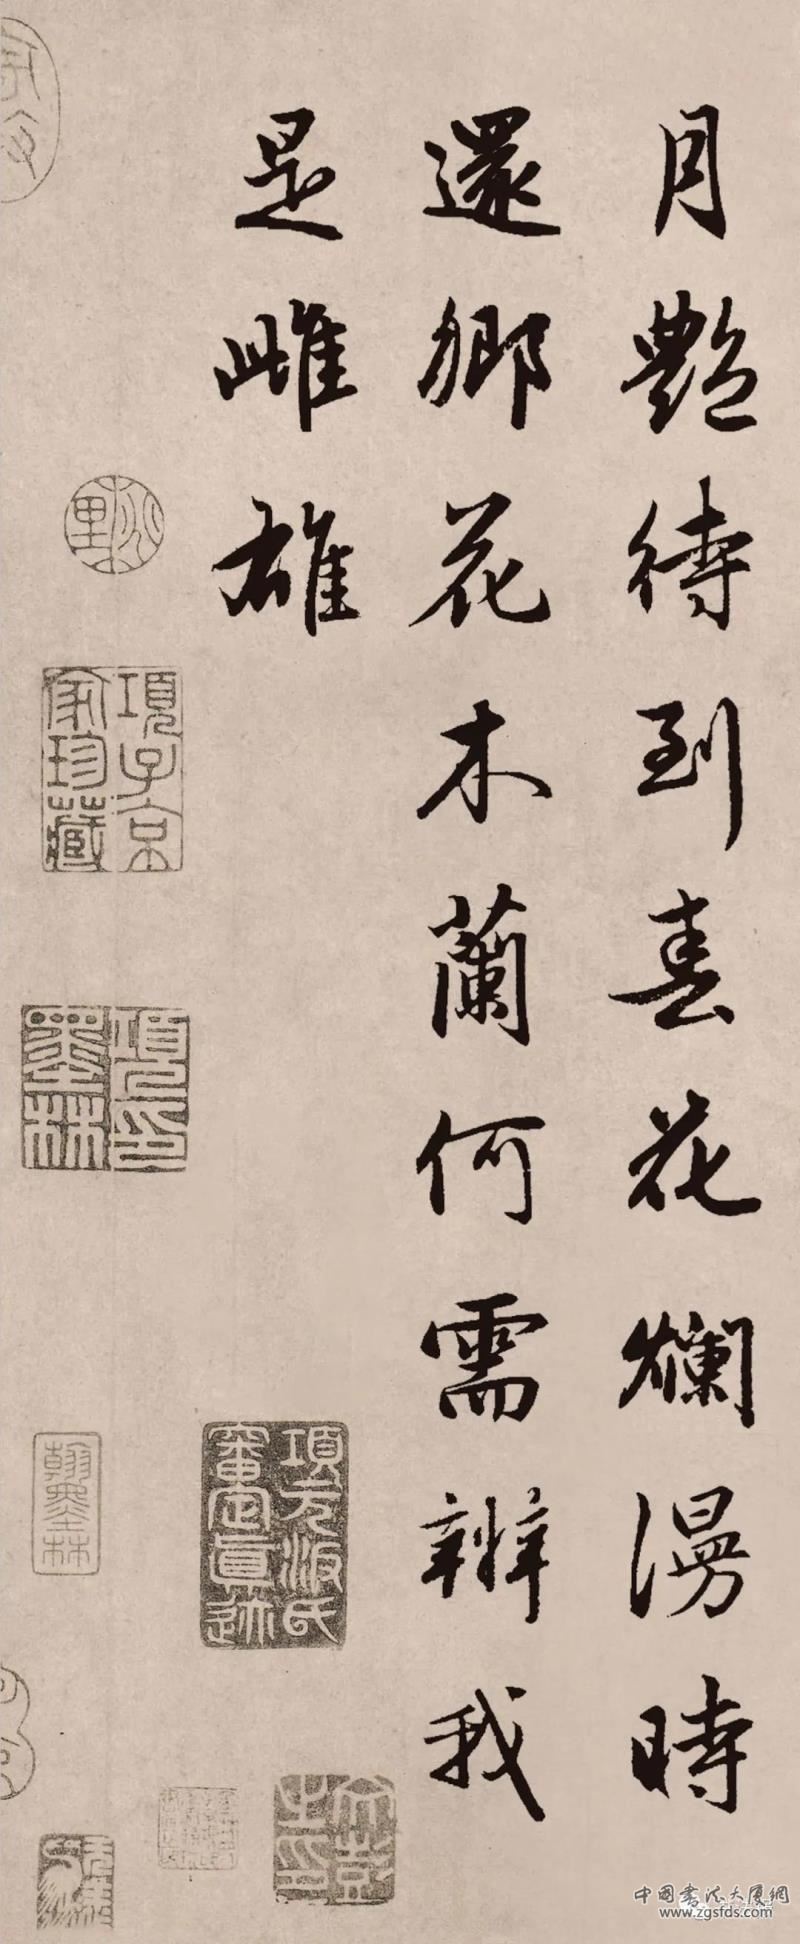 月艷待到春花爛漫時
還鄉花木蘭何需辨我
是雌雄
項子京家珍藏
項元汴印墨林
項元汴氏審定真跡
翰墨林
中国書法大厦網
www.zgsfds.com